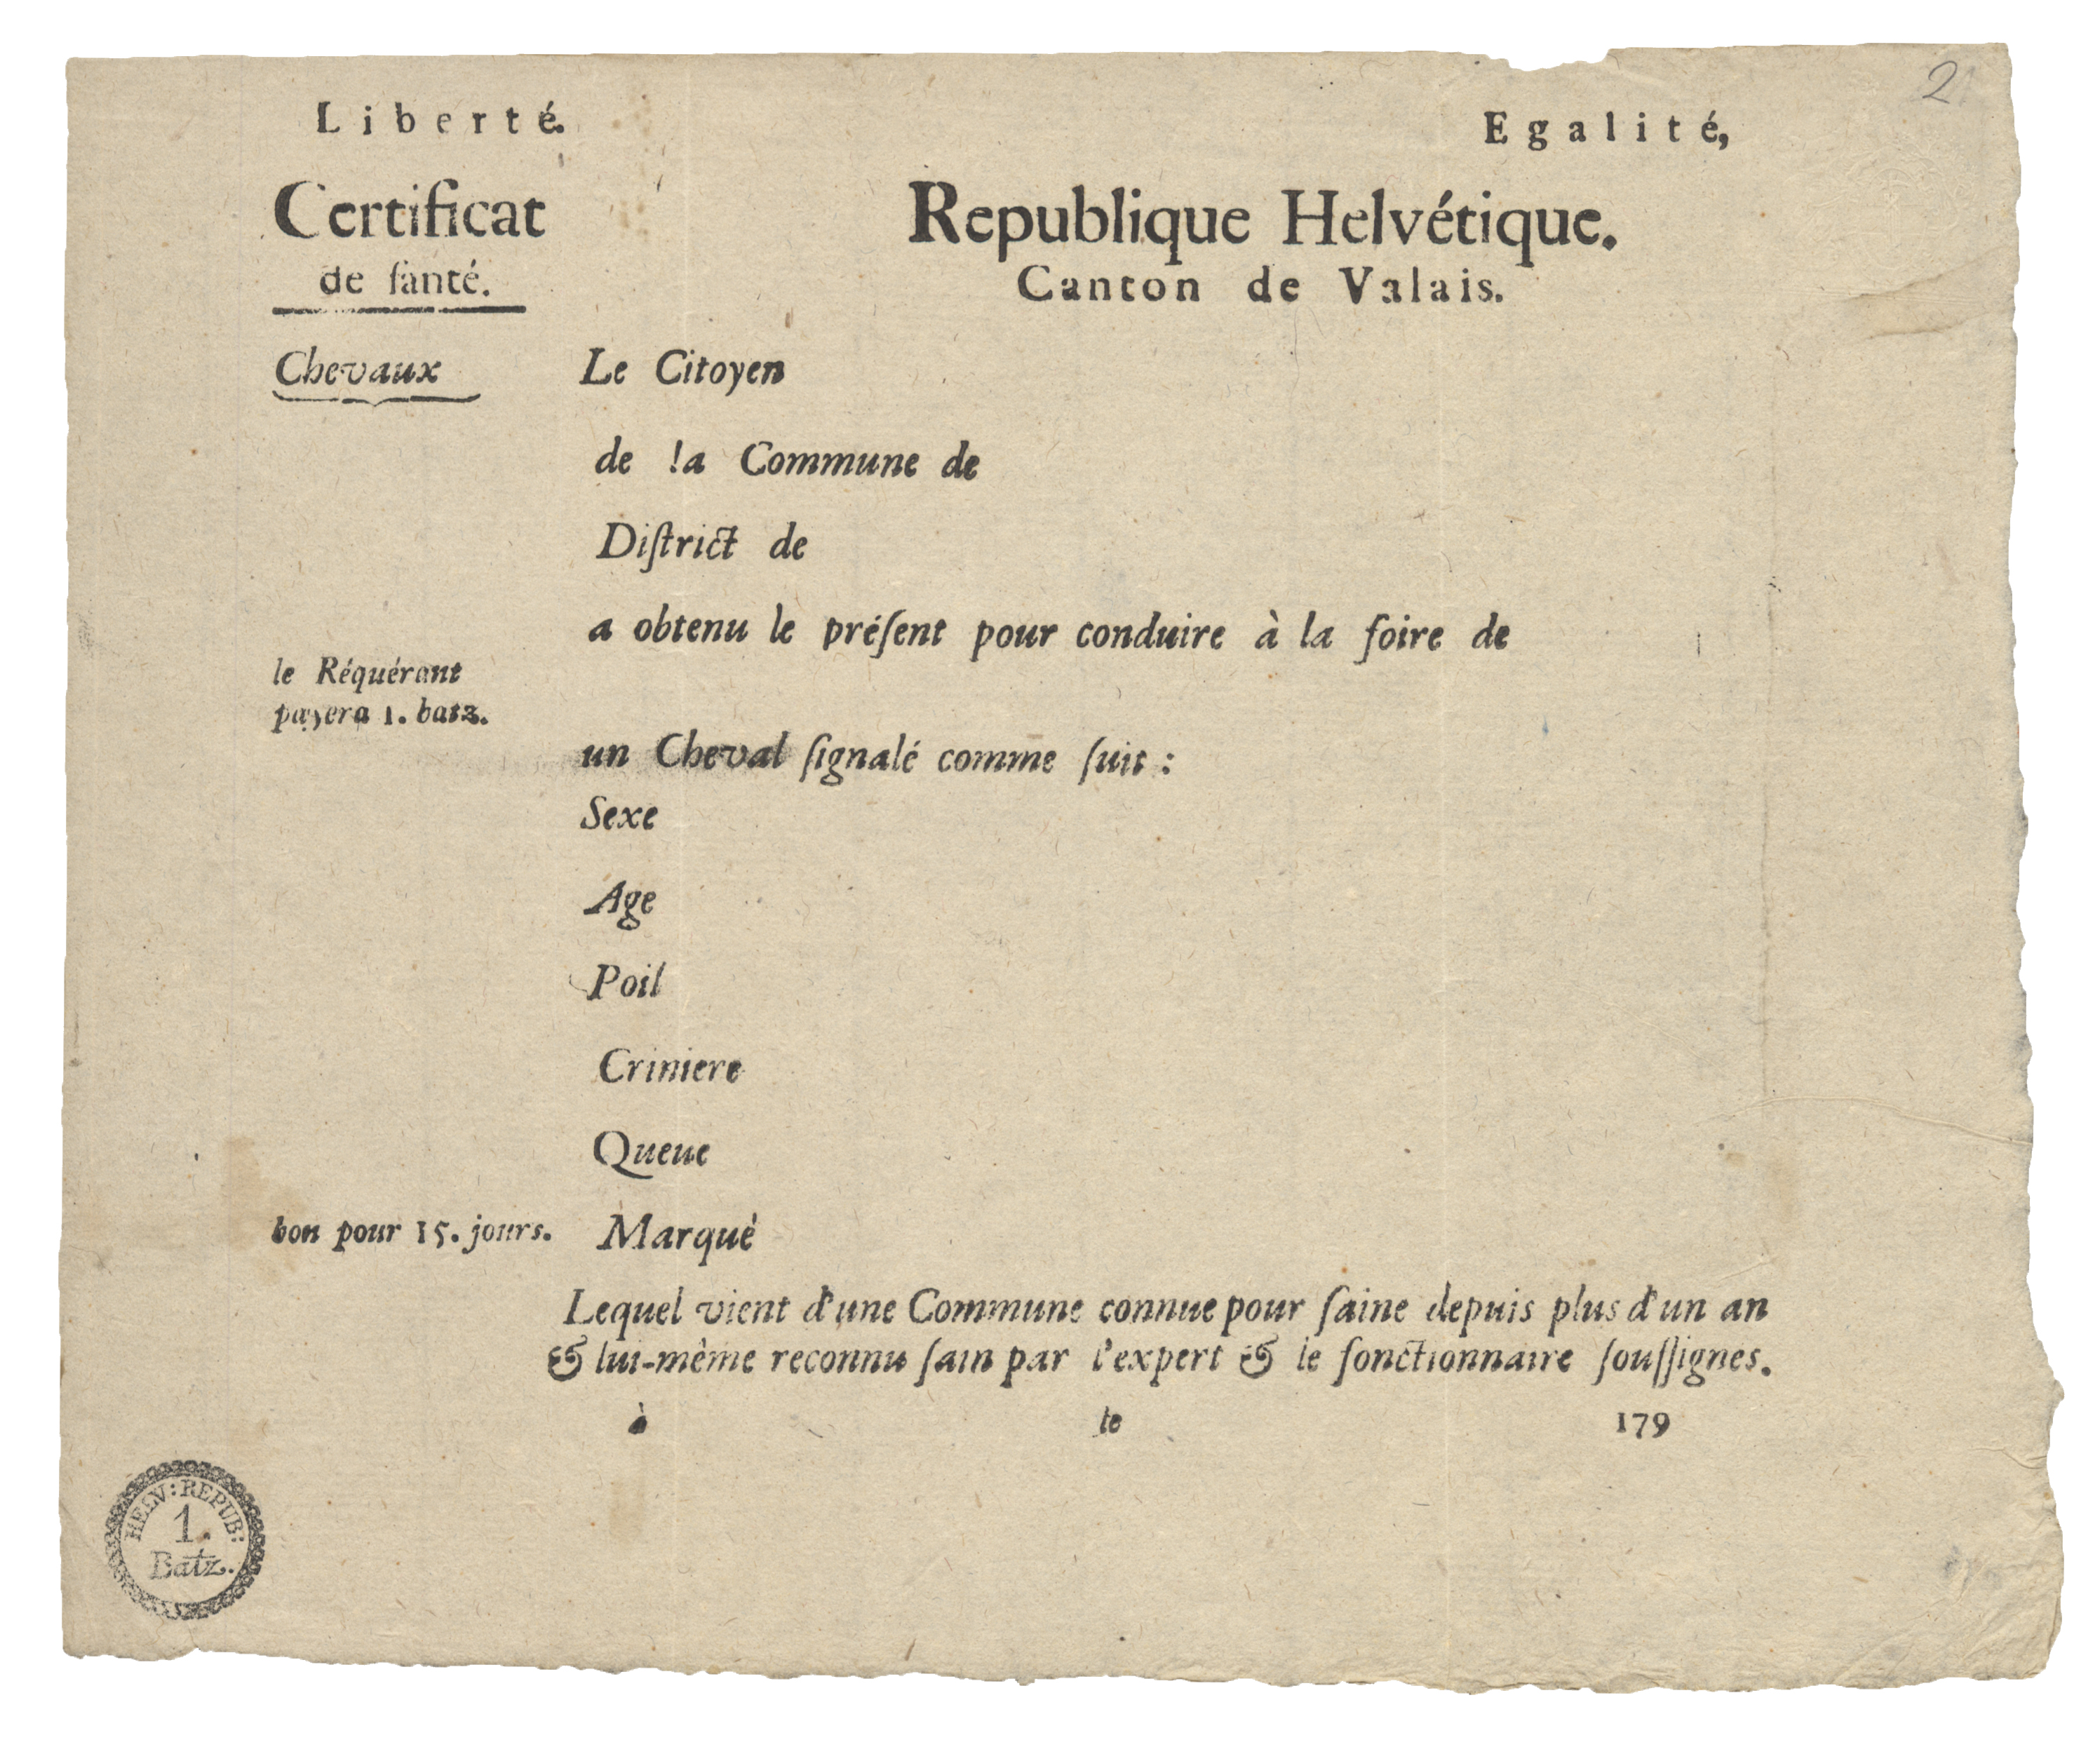 2
Liberté.
Egalité,
Certificat
de ſanté.
Republique Helvétique.
Canton de Valais.
Chevaux
Le Citoyen
de la Commune de
Diſtrict de
a obtenu le préſent pour conduire à la foire de
le Réquérant
payera 1. batz.
un Cheval ſignalé comme ſuit :
Sexe
Age
Poil
Criniere
Queue
bon pour 15. jours.
Marqué
Lequel vient d'une Commune connue pour ſaine depuis plus d'un an
& lui-même reconnu ſain par l'expert & le fonctionnaire ſouſſignes.
à le 179
HELV: REPUB:
1.
Batz.